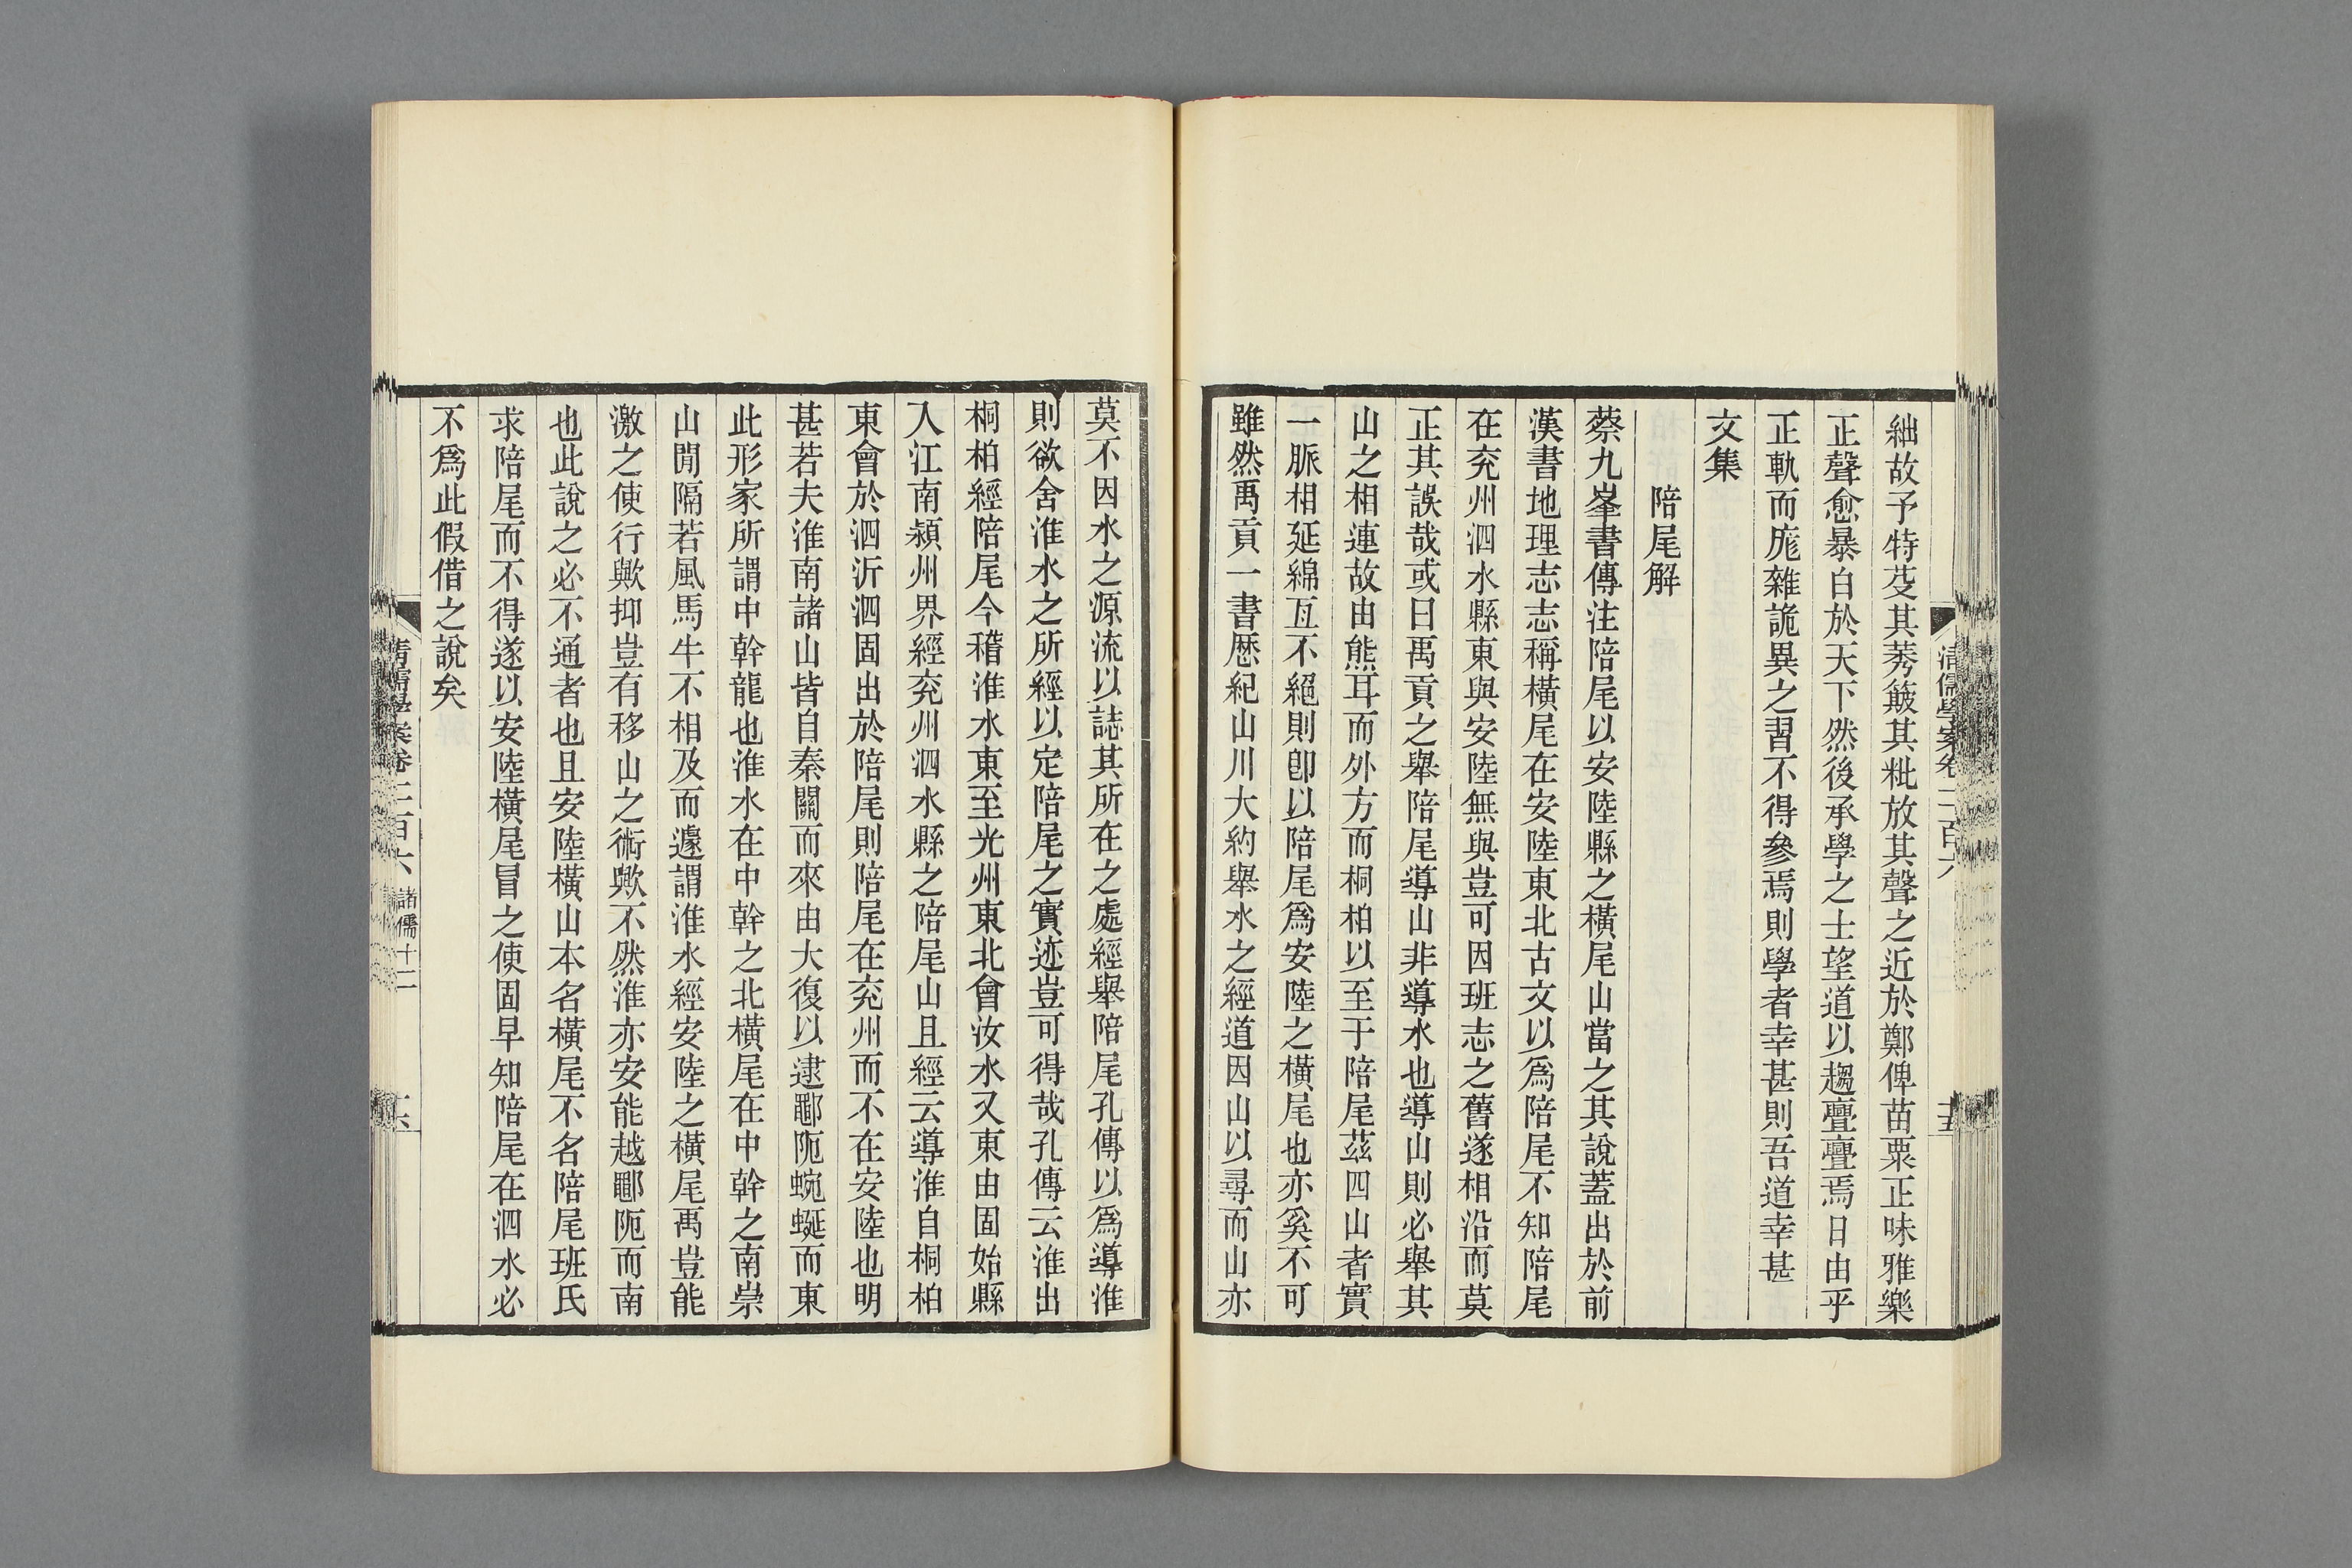 絀故予特芟其莠簸其粃放其聲之近於鄭俾苗粟正味雅樂
正聲愈暴白於天下然後承學之士望道以趨亹亹焉日由乎
正軌而厖雜詭異之習不得參焉則學者幸甚則吾道幸甚
文集
陪尾解
蔡九峯書傳注陪尾以安陸縣之橫尾山當之其說蓋出於前
漢書地理志志稱橫尾在安陸東北古文以爲陪尾不知陪尾
在兖州泗水縣東與安陸無與豈可因班志之舊遂相沿而莫
正其誤哉或曰禹貢之舉陪尾導山非導水也導山則必舉其
山之相連故由熊耳而外方而桐柏以至于陪尾茲四山者實
一脈相延綿亙不絕則卽以陪尾爲安陸之橫尾也亦奚不可
雖然禹貢一書歷紀山川大約舉水之經道因山以尋而山亦
清儒學案卷二百六
十五
莫不因水之源流以誌其所在之處經舉陪尾孔傳以爲導淮
則欲舍淮水之所經以定陪尾之實迹豈可得哉孔傳云淮出
桐柏經陪尾今稽淮水東至光州東北會汝水又東由固始縣
入江南潁州界經兖州泗水縣之陪尾山且經云導淮自桐柏
東會於泗沂泗固出於陪尾則陪尾在兖州而不在安陸也明
甚若夫淮南諸山皆自秦關而來由大復以逮鄳阨蜿蜒而東
此形家所謂中幹龍也淮水在中幹之北橫尾在中幹之南崇
山閒隔若風馬牛不相及而遽謂淮水經安陸之橫尾禹豈能
激之使行歟抑豈有移山之術歟不然淮亦安能越鄳阨而南
也此說之必不通者也且安陸橫山本名橫尾不名陪尾班氏
求陪尾而不得遂以安陸橫尾冒之使固早知陪尾在泗水必
不爲此假借之說矣
清儒學案卷二百六 諸儒十二
十六